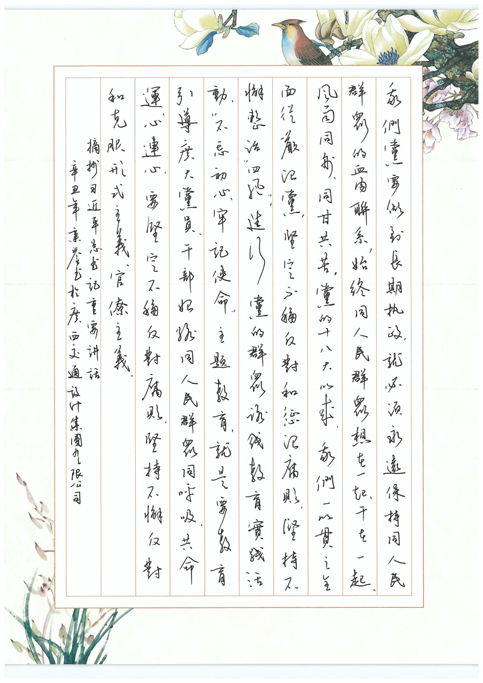 我們黨要做到長期执政，就必須永遠保持同人民
群衆的血肉聯系，始終同人民群衆想在一起、干在一起，
风雨同舟、同甘共苦。黨的十八大以來，我們一以貫之全
面從嚴治黨，堅定不移反對和懲治腐敗，堅持不
懈整治“四风”，進行黨的群衆路线教育實踐活
動、“不忘初心、牢记使命”主题教育，就是要教育
引導廣大黨員、干部始終同人民群衆同呼吸、共命
運、心連心。要堅定不移反對腐敗，堅持不懈反對
和克服形式主義、官僚主義。
摘抄习近平总书记重要讲话
辛丑年 春 书於廣西交通設计集團有限公司